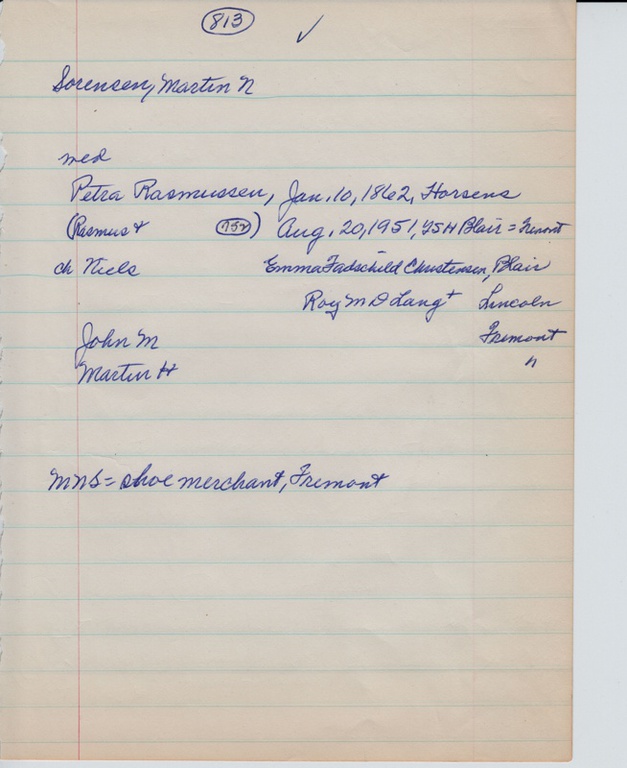 813 ✓
Sorensen, Martin N
med
Petra Rasmussen, Jan. 10, 1862, Horsens
(Rasmus + 752) Aug. 20, 1951, Blair = Fremont
ch Niels Emma Fadschild Christensen, Blair
Roy M D Lang + Lincoln
John M Fremont
Martin H "
MNS = shoe merchant, Fremont